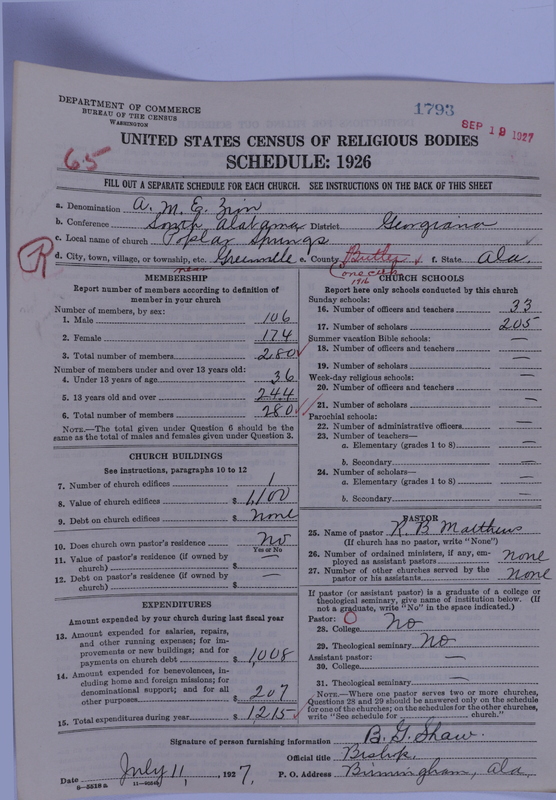 DEPARTMENT OF COMMERCE
BUREAU OF THE CENSUS
WASHINGTON
1793
SEP 19 1927
65
UNITED STATES CENSUS OF RELIGIOUS BODIES
SCHEDULE: 1926
FILL OUT A SEPARATE SCHEDULE FOR EACH CHURCH. SEE INSTRUCTIONS ON THE BACK OF THIS SHEET
a. Denomination A. M. E. Zion
b. Conference South Alabama District Georgiana
c. Local name of church Poplar Springs
R
d. City, town, village, or township, etc. near Greenville e. County Butler f. State Ala.
1916
MEMBERSHIP
Report number of members according to definition of
member in your church
Number of members, by sex:
1. Male 106
2. Female 174
3. Total number of members 280
Number of members under and over 13 years old:
4. Under 13 years of age 36
5. 13 years old and over 244
6. Total number of members 280
NOTE.—The total given under Question 6 should be the
same as the total of males and females given under Question 3.
CHURCH BUILDINGS
See instructions, paragraphs 10 to 12
7. Number of church edifices 1
8. Value of church edifices $ 1,100
9. Debt on church edifices $ none
10. Does church own pastor's residence No
Yes or No
11. Value of pastor's residence (if owned by
church) $ —
12. Debt on pastor's residence (if owned by
church) $ —
EXPENDITURES
Amount expended by your church during last fiscal year
13. Amount expended for salaries, repairs,
and other running expenses; for im-
provements or new buildings; and for
payments on church debt $ 1008
14. Amount expended for benevolences, in-
cluding home and foreign missions; for
denominational support; and for all
other purposes $ 207
15. Total expenditures during year $ 1215
CHURCH SCHOOLS
Report here only schools conducted by this church
Sunday schools:
16. Number of officers and teachers 33
17. Number of scholars 205
Summer vacation Bible schools:
18. Number of officers and teachers —
19. Number of scholars —
Week-day religious schools:
20. Number of officers and teachers —
21. Number of scholars —
Parochial schools:
22. Number of administrative officers —
23. Number of teachers—
a. Elementary (grades 1 to 8) —
b. Secondary —
24. Number of scholars—
a. Elementary (grades 1 to 8) —
b. Secondary —
PASTOR
25. Name of pastor R B Matthews
(If church has no pastor, write "None")
26. Number of ordained ministers, if any, em-
ployed as assistant pastors none
27. Number of other churches served by the
pastor or his assistants None
If pastor (or assistant pastor) is a graduate of a college or
theological seminary, give name of institution below. (If
not a graduate, write "No" in the space indicated.)
Pastor: O
28. College No
29. Theological seminary No
Assistant pastor:
30. College —
31. Theological seminary —
NOTE.—Where one pastor serves two or more churches,
Questions 28 and 29 should be answered only on the schedule
for one of the churches; on the schedules for the other churches,
write "See schedule for church."
Signature of person furnishing information B. G. Shaw.
Official title Bishop.
Date July 11, 1927. P. O. Address Birmingham, Ala.
8—5518 a